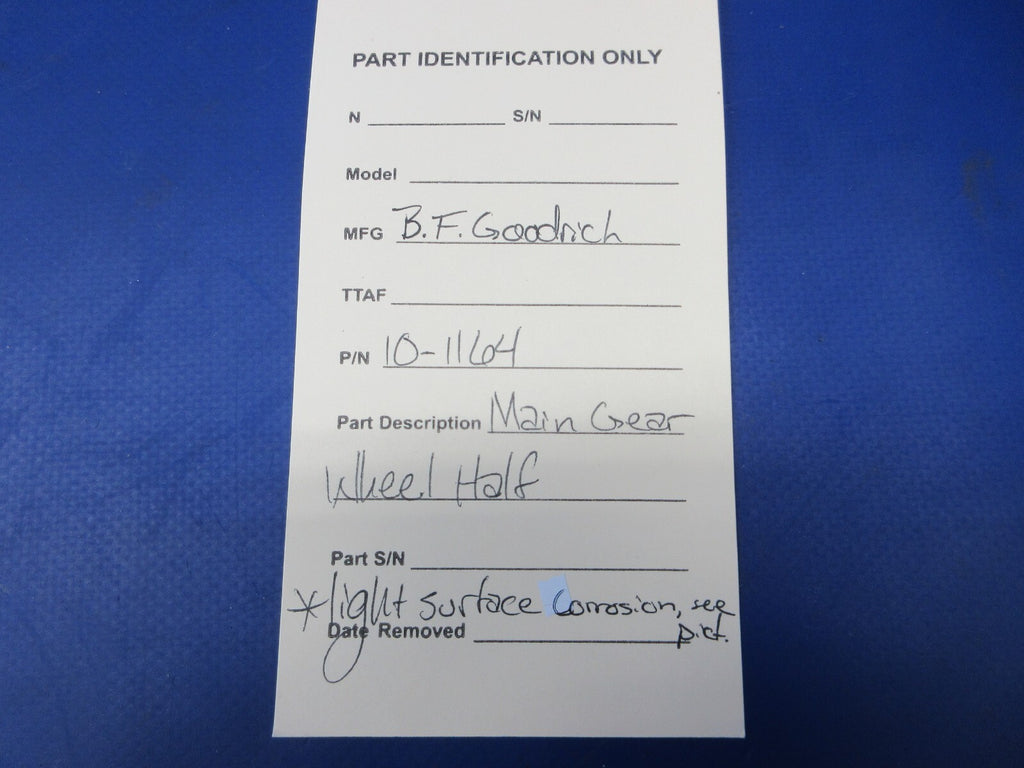 PART IDENTIFICATION ONLY
N S/N
Model
MFG B.F. Goodrich
TTAF
P/N 10-1164
Part Description Main Gear
Wheel Half
Part S/N
*light surface Corrosion, see
Date Removed pict.